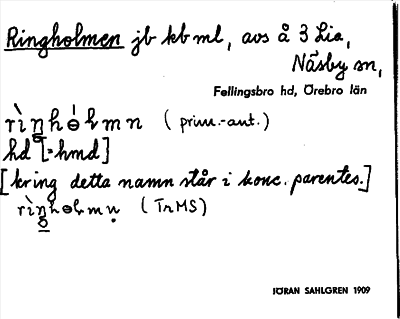 Ringholmen jb kb ml, avs å 3 Lia,
Näsby sn,
Fellingsbro hd, Örebro län
rìŋhólmn (prim.-ant.)
hd [=hmd]
[kring detta namn står i konc. parentes.]
rìŋhɵlmn (TrMS)
JÖRAN SAHLGREN 1909